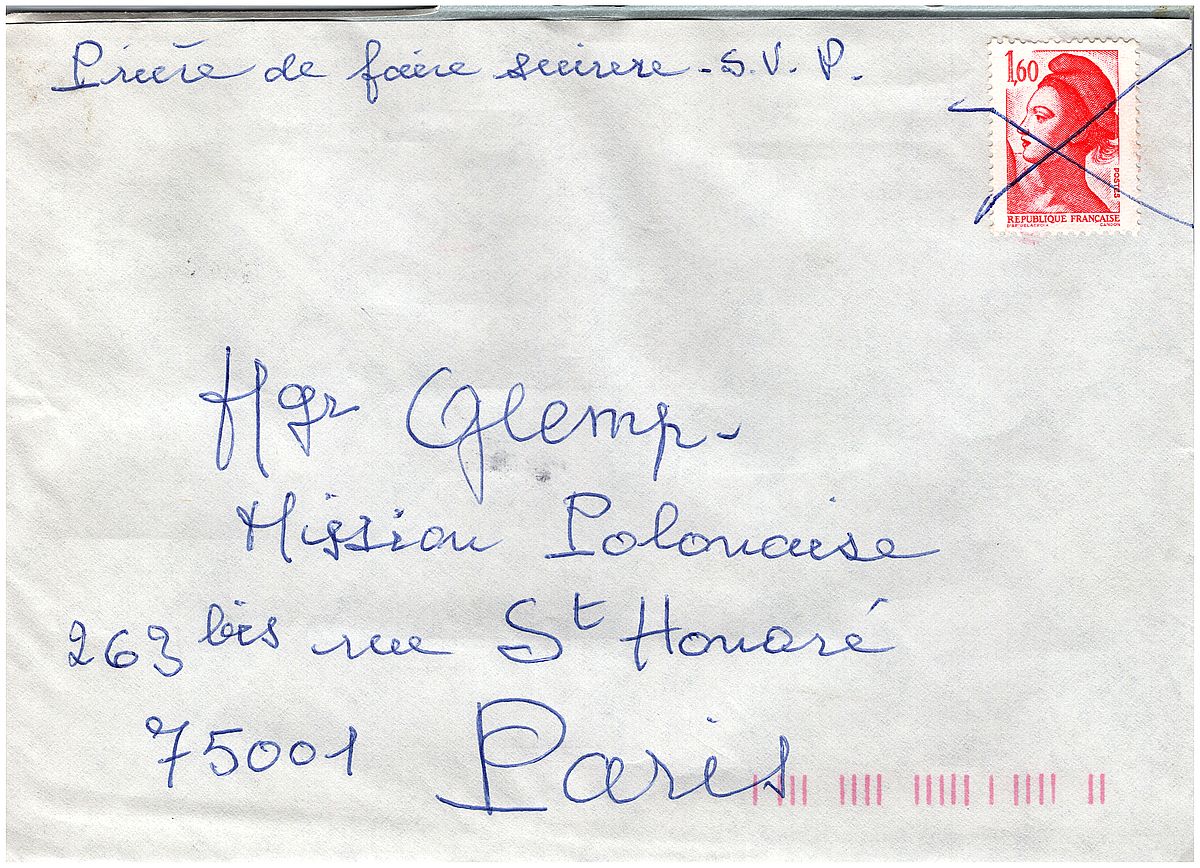 Prière de faire suivre - S.V.P.
1,60
POSTES
REPUBLIQUE FRANÇAISE
D'AP. DELACROIX GANDON
Mgr Glemp -
Mission Polonaise
263 bis rue St Honoré
75001 Paris